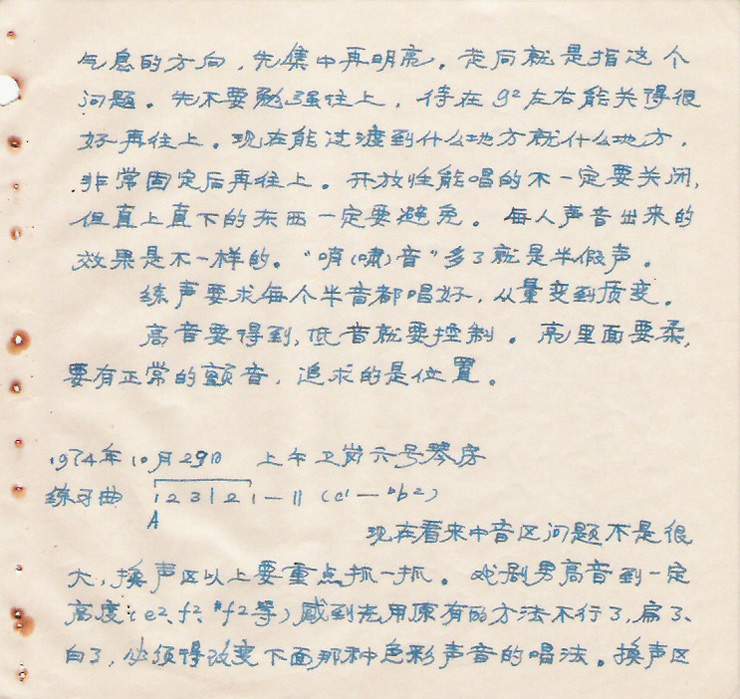 气息的方向，先集中再明亮。走向就是指这个
问题。先不要勉强往上，待在g²左右能关得很
好再往上。现在能过渡到什么地方就什么地方，
非常固定后再往上。开放性能唱的不一定要关闭，
但直上直下的东西一定要避免。每人声音出来的
效果是不一样的。“哨(啸)音”多了就是半假声。
练声要求每个半音都唱好，从量变到质变。
高音要得到，低音就要控制。亮里面要柔，
要有正常的颤音，追求的是位置。
1974年10月29日 上午卫岗六号琴房
练习曲 1 2 3 | 2 1 — || (c¹—ᵇb²)
A
现在看来中音区问题不是很
大，换声区以上要重点抓一抓。戏剧男高音到一定
高度(e²、f²、#f²等)感到先用原有的方法不行了，扁了、
白了，必须得改变下面那种色彩声音的唱法。换声区